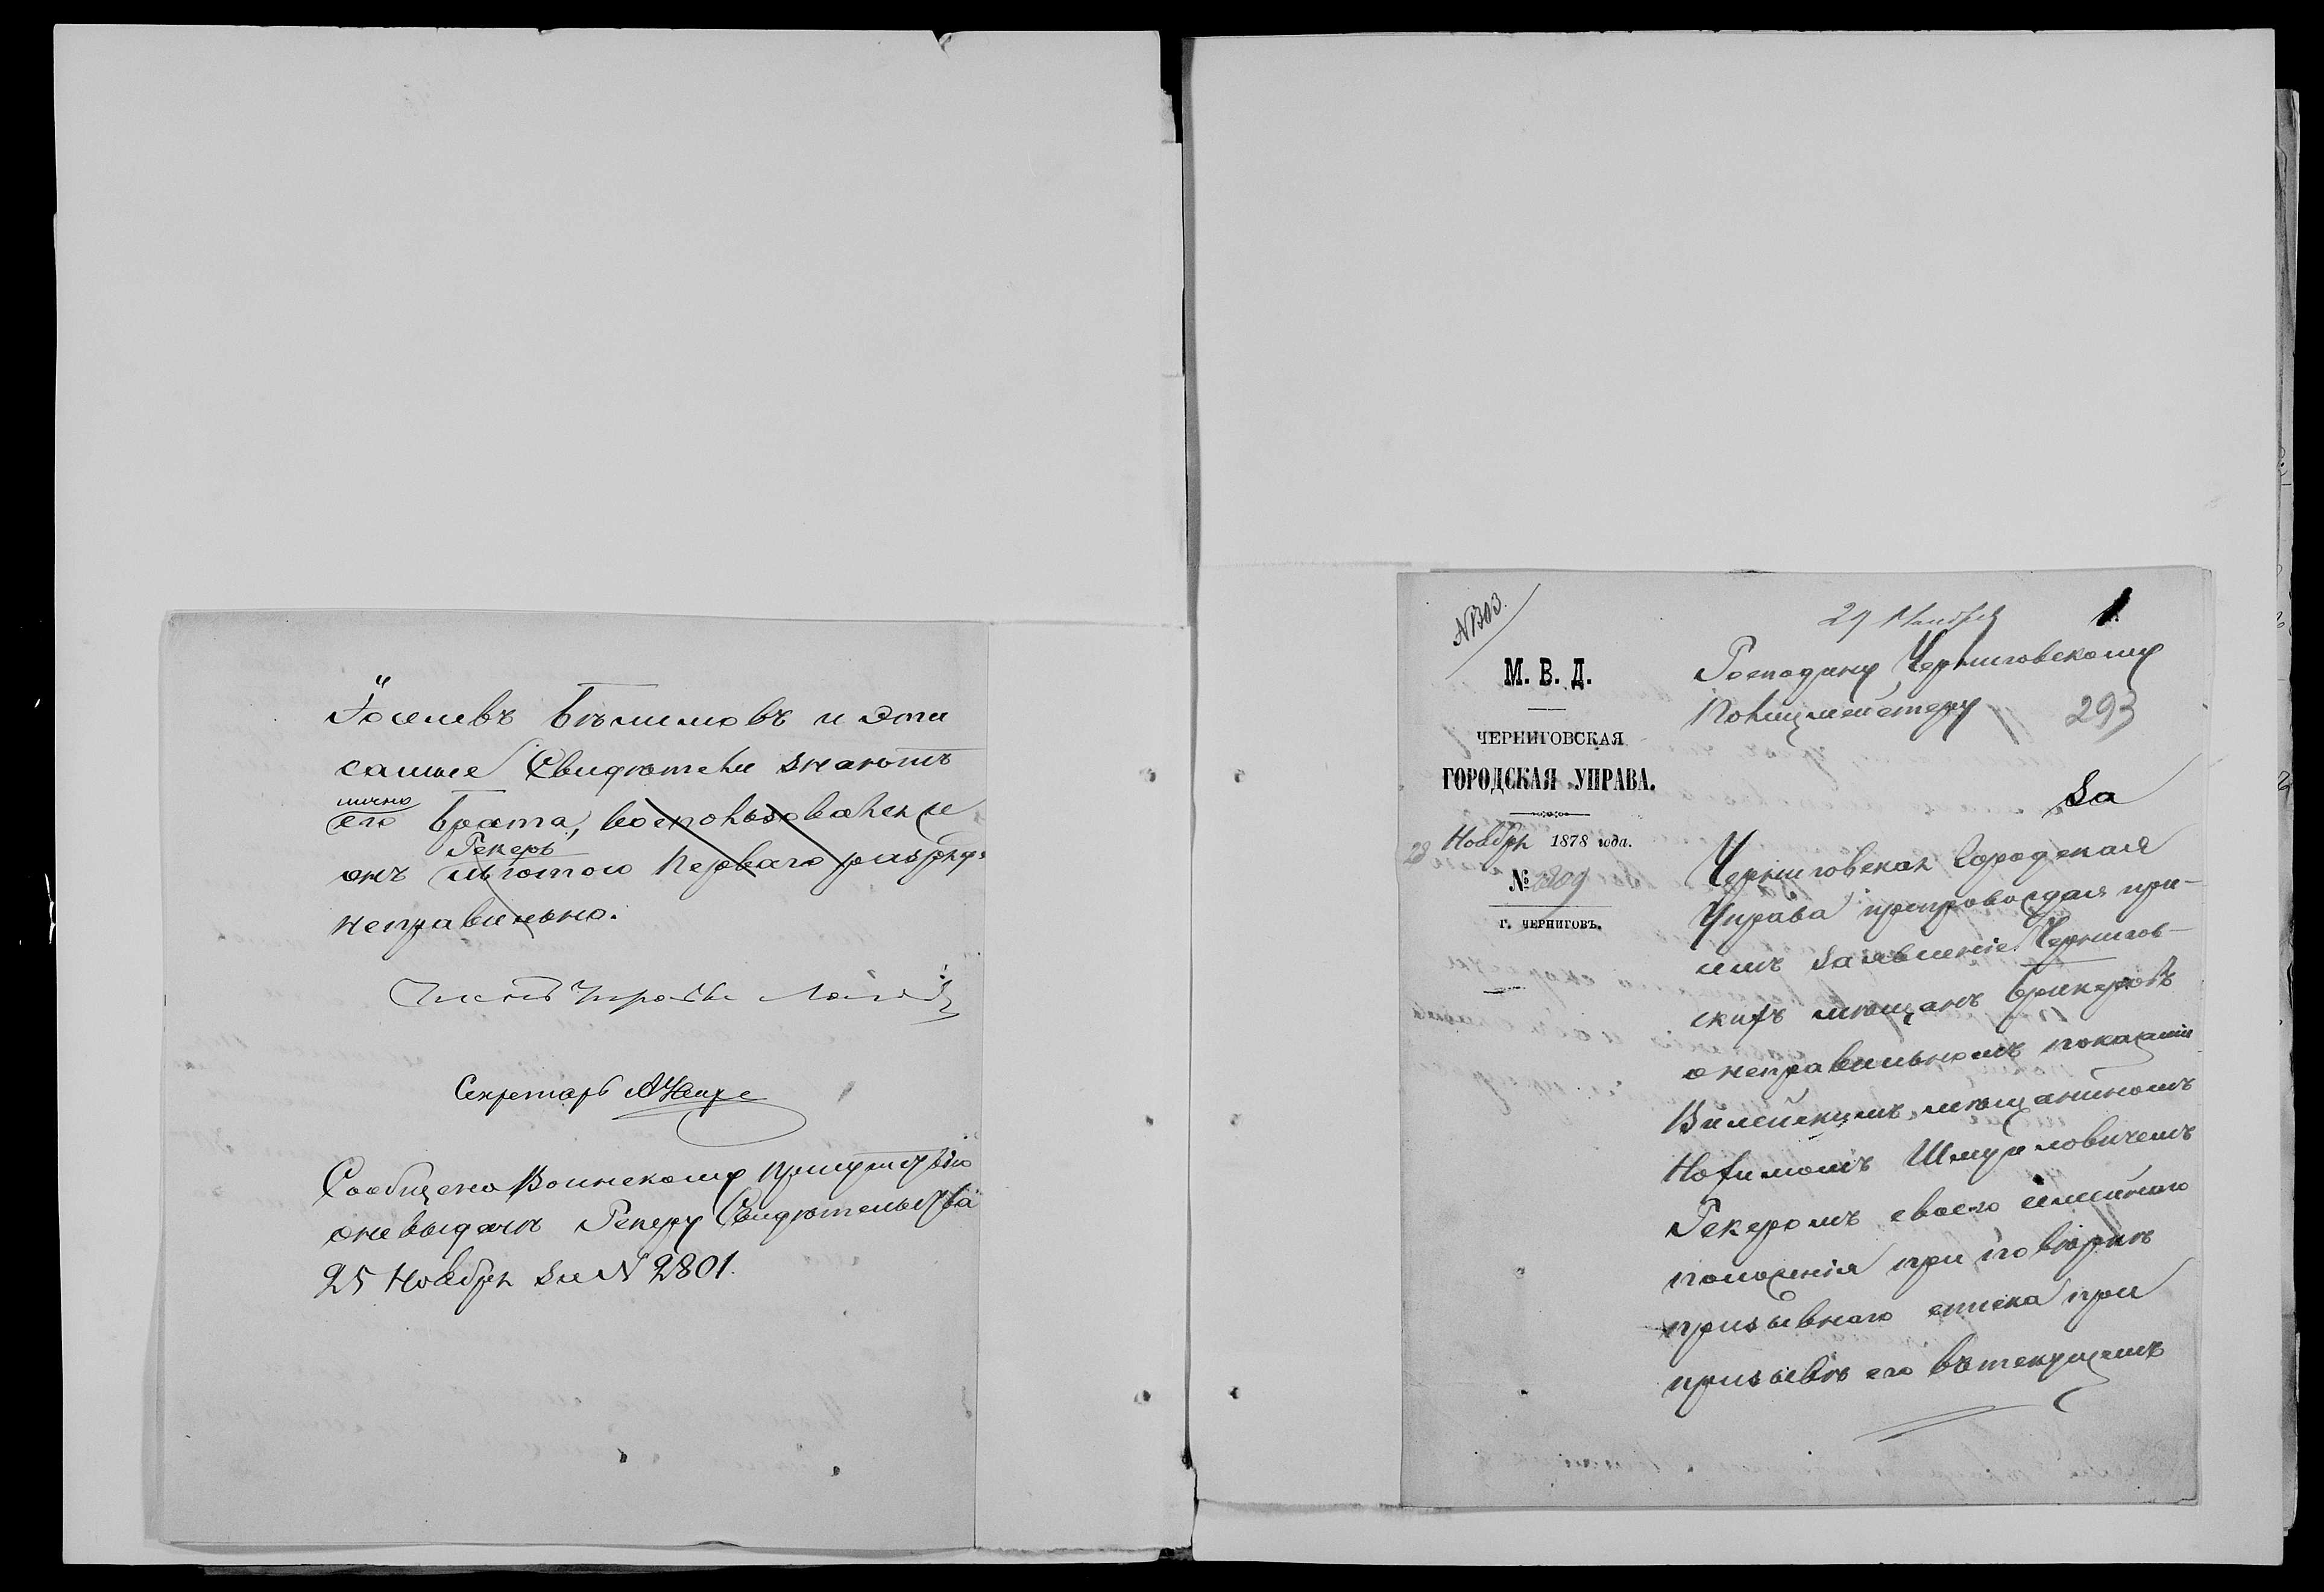 Іоселивъ Вилимовъ и эти
самые Свидѣтели знаютъ
лично
его брата, воспользовался
Рекеръ
онъ льготою перваго разряда
неправильно.
Членъ Управы
Секретарь
Сообщено Воинскому Присутствію
о невыдачѣ Рекеру Свидѣтельства
25 Ноября за № 2801.
№1303.
29 Ноября 1
М. В. Д.
ЧЕРНИГОВСКАЯ
ГОРОДСКАЯ УПРАВА.
28 Ноября 1878 года.
№
г. ЧЕРНИГОВЪ.
Господину Черниговскому
Полицмейстеру 293
За
Черниговская Городская
Управа препровождая при-
семъ заявленіе Чернигов-
скихъ мѣщанъ
о неправильномъ показаніи
Вилейскимъ мѣщаниномъ
Нохимомъ Шмуиловичемъ
Рекеромъ своего семейнаго
положенія при повѣркѣ
призывнаго списка при
призывѣ его въ текущемъ